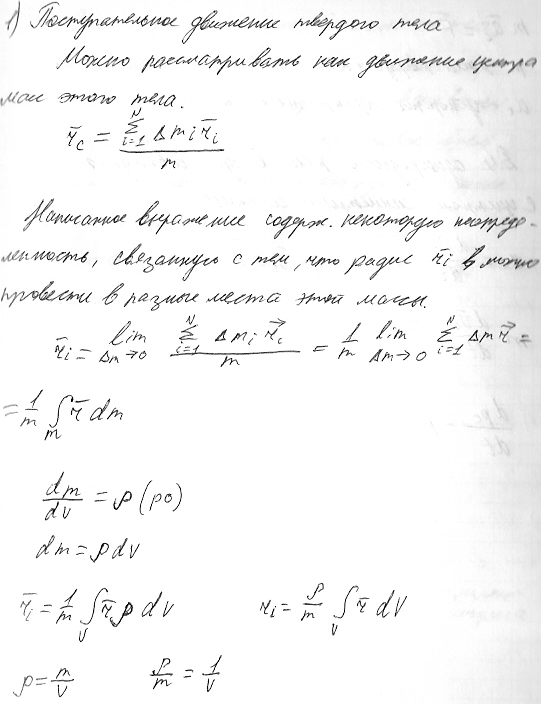 1) Поступательное движение твердого тела
Можно рассматривать как движение центра
масс этого тела.
r̄c = Σ(i=1, N) Δmi r̄i / m
Написанное выражение содерж. некоторую неопреде-
ленность, связанную с тем, что радиус r̄i в, можно
провести в разные места этой массы.
r̄i = lim(Δm→0) Σ(i=1, N) Δmi r⃗c / m = 1/m lim(Δm→0) Σ(i=1, N) Δm r⃗ =
= 1/m ∫m r̄ dm
dm/dv = ρ (ро)
dm = ρ dv
r̄i = 1/m ∫v r̄ ρ dv    ri = ρ/m ∫v r̄ dV
ρ = m/v    ρ/m = 1/V